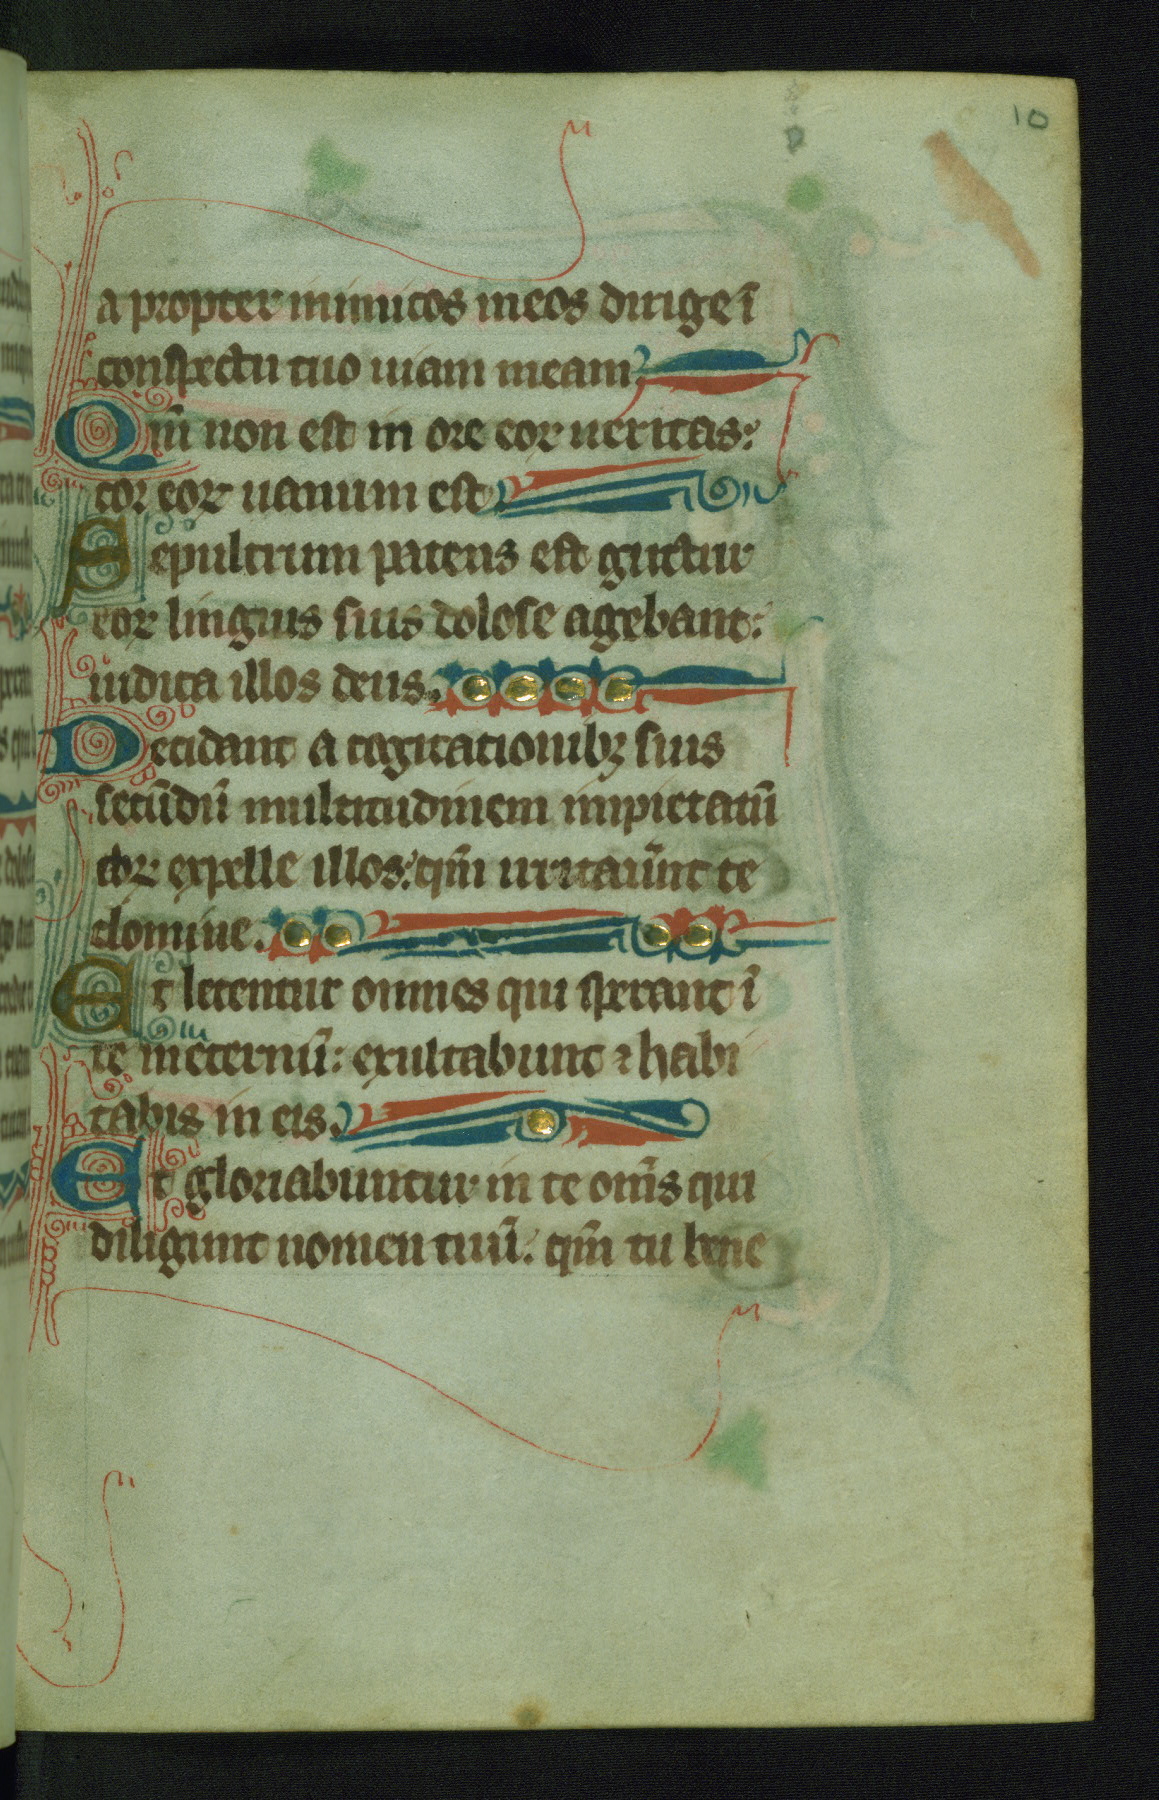 10
a propter inimicos meos dirige ī
conspectu tuo uiam meam.
Qm̄ non est in ore eoꝝ ueritas:
cor eoꝝ uanum est.
Sepulcrum patens est guttur
eoꝝ linguis suis dolose agebant:
iudica illos deus.
Decidant a cogitationibꝫ suis
secūdū multitudinem impietatū
eoꝝ expelle illos: qm̄ irritauer̄nt te
domine.
Et letentur omnes qui sperant ī
te in eternū: exultabunt ⁊ habi
tabis in eis.
Et gloriabuntur in te om̄s qui
diligunt nomen tuū: qm̄ tu bene